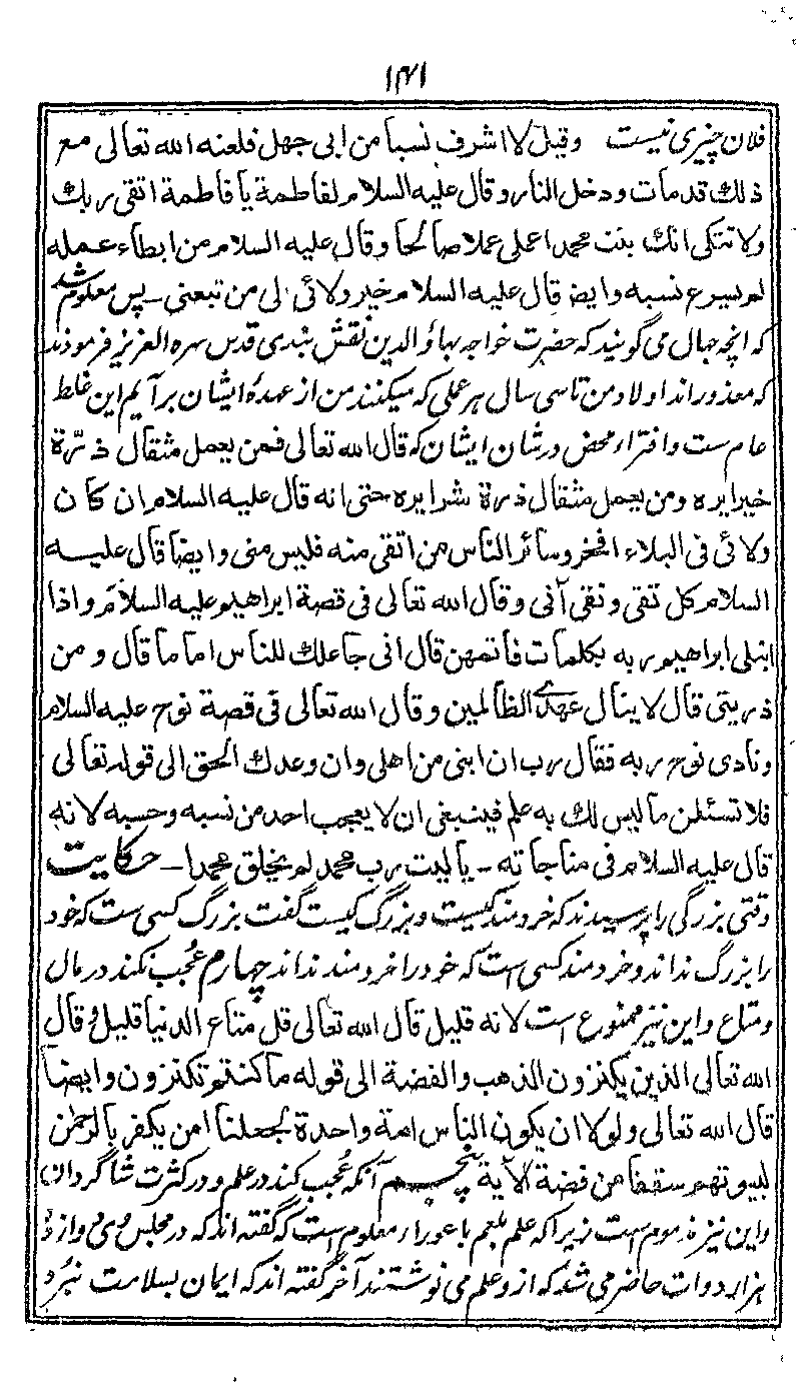 ۱۴۱
فلان چیزی نیست وقیل لا اشرف نسبا من ابی جهل فلعنه الله تعالی مع
ذلك قدمات ودخل النار وقال علیه السلام لفاطمة یا فاطمة اتقی ربك
ولا تتکی انك بنت محمد اعملی عملا صالحا وقال علیه السلام من ابطاء عمله
لم یسرع نسبه وایضا قال علیه السلام خیر ولائی لی من تبعنی ـ پس معلوم شد
که انچه جهال می گویند که حضرت خواجه بهاؤالدین نقش بندی قدس سره العزیز فرموذند
که معذور اند اولاد من تا سی سال هر عملی که میکنند من از عهدهٔ ایشان برآیم این غلط
عام ست وافتراء محض در شان ایشان که قال الله تعالی فمن یعمل مثقال ذرّة
خیرا یره ومن یعمل مثقال ذرة شرا یره حتی انه قال علیه السلام ان کان
ولائی فی البلاء افخر وسائر الناس من اتقی منه فلیس منی وایضا قال علیه
السلام کل تقی ونقی آلی وقال الله تعالی فی قصة ابراهیم علیه السلام واذا
ابتلی ابراهیم ربه بکلمات فاتمهن قال انی جاعلك للناس اماما قال ومن
ذریتی قال لا ینال عهدی الظالمین وقال الله تعالی فی قصة نوح علیه السلام
ونادی نوح ربه فقال رب ان ابنی من اهلی وان وعدك الحق الی قوله تعالی
فلا تسئلن ما لیس لك به علم فینبغی ان لا یعجب احد من نسبه وحسبه لانه
قال علیه السلام فی مناجاته ـ یا لیت رب محمد لم یخلق محمدا ـ حکایت
وقتی بزرگی را پرسیدند که خردمند کیست وبزرگ کیست گفت بزرگ کسی ست که خود
را بزرگ نداند وخردمند کسی است که خود را خردمند نداند چهارم عُجب نکند در مال
ومتاع واین نیز ممنوع است لانه قلیل قال الله تعالی قل متاع الدنیا قلیل وقال
الله تعالی الذین یکنزون الذهب والفضة الی قوله ما کنتم تکنزون وایضا
قال الله تعالی ولولا ان یکون الناس امة واحدة لجعلنا لمن یکفر بالرحمن
لبیوتهم سقفا من فضة الآیة پنجم آنکه عُجب کند در علم ودر کثرت شاگردان
واین نیز مذموم است زیرا که علم بلعم باعورا معلوم است که گفته اند که در مجلس وی دوازده
هزار دوات حاضر می شد که از و علم می نوشتند آخر گفته اند که ایمان بسلامت نبُرد